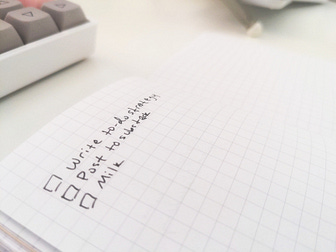 Write to-do strategy
Post to substack
Milk